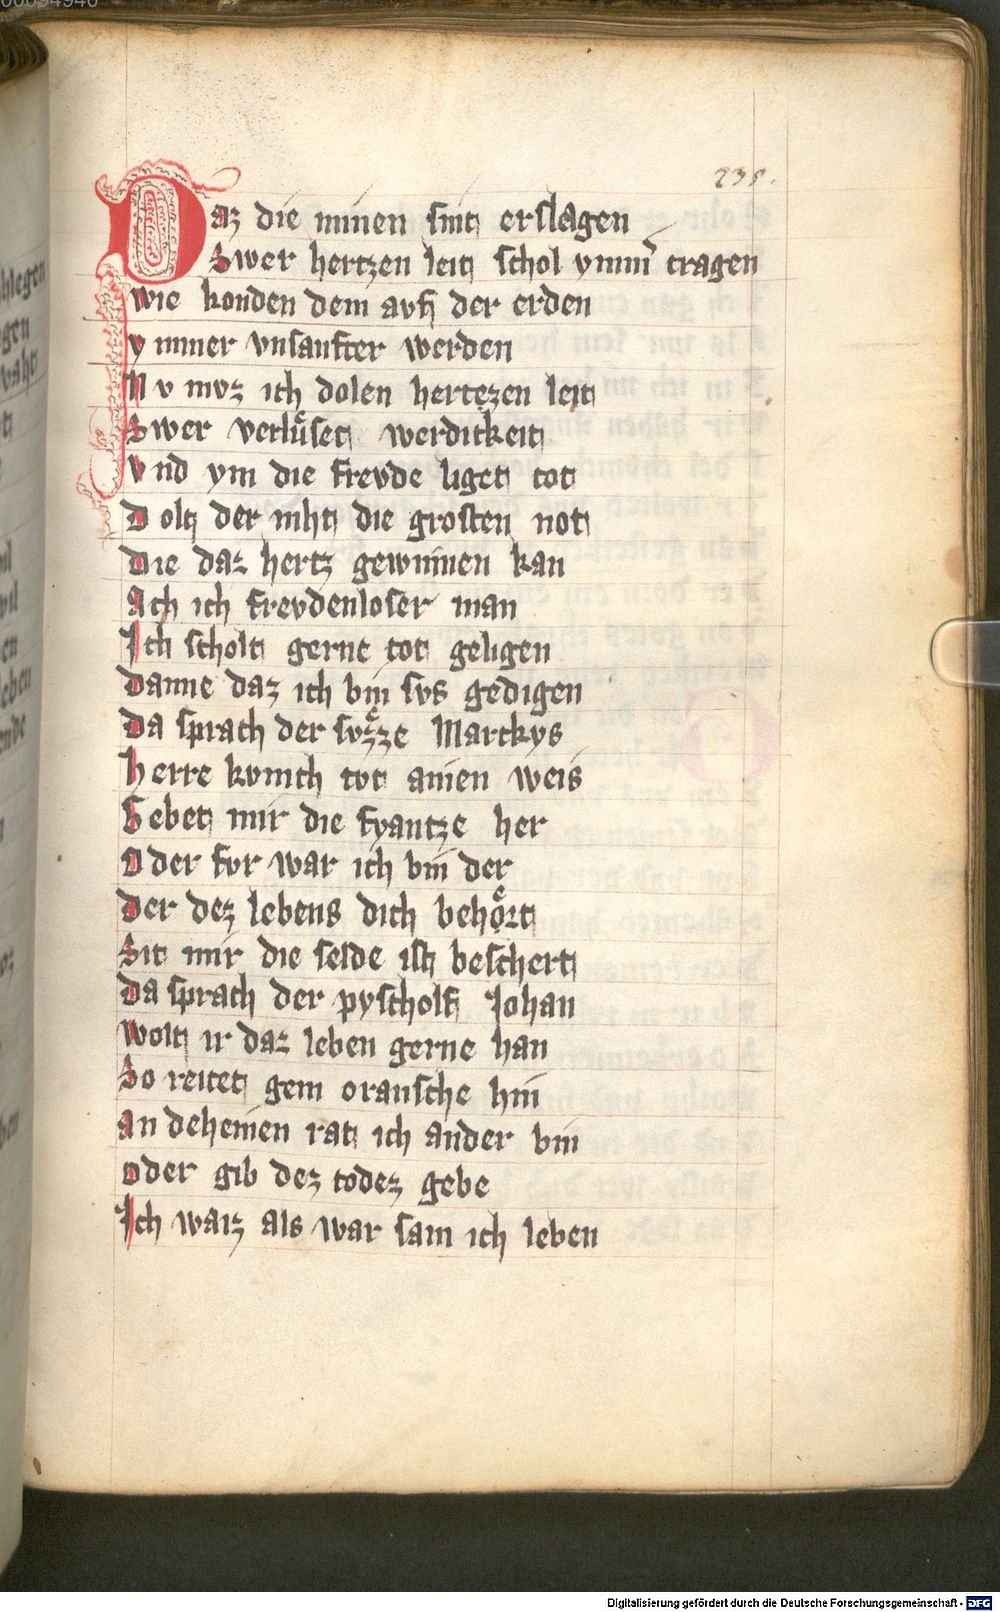 235.
Daz die minen sint erslagen
Swer hertzen leit schol ymmer tragen
wie konden dem avf der erden
ymmer vnsanfter werden
Nv mvz ich dolen hertezen leit
Swer verlüset werdickeit
vnd ym die frevde liget tot
Dolt der niht die grosten not
Die daz hertz gewinnen kan
Ach ich frevdenloser man
Ich scholt gerne tot geligen
Danne daz ich bin svs gedigen
Da sprach der svͤzze Marckys
Herre kvnich tot ainen weis
Gebet mir die fyantze her
Oder fvr war ich bin der
Der dez lebens dich behoͤrt
Sit mir die selde ist beschert
Da sprach der pyscholf Johan
Wolt ir daz leben gerne han
So reitet gein oransche hin
an deheinen rat ich ander bin
oder gib dez todez gebe
Ich waiz als war sam ich leben
Digitalisierung gefördert durch die Deutsche Forschungsgemeinschaft - DFG